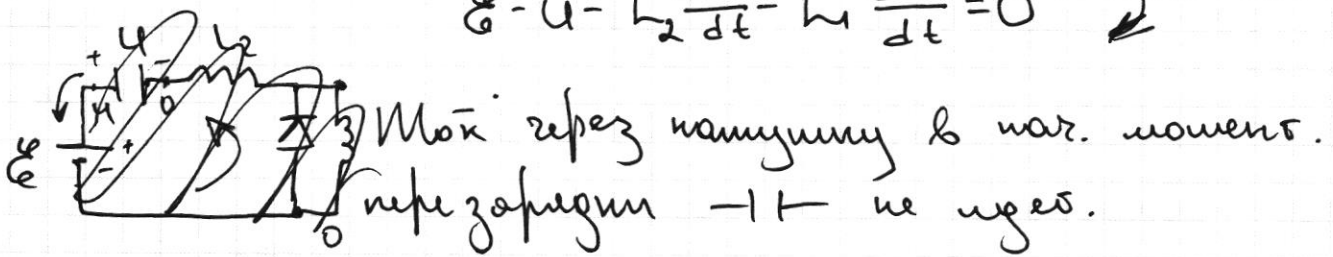 ℰ - U - L₂ /dt - L₁ /dt = 0
+ U - L₂
0
ℰ + -
Ток через катушку в нач. момент.
перезарядки ⊣⊢ не идёт.
0